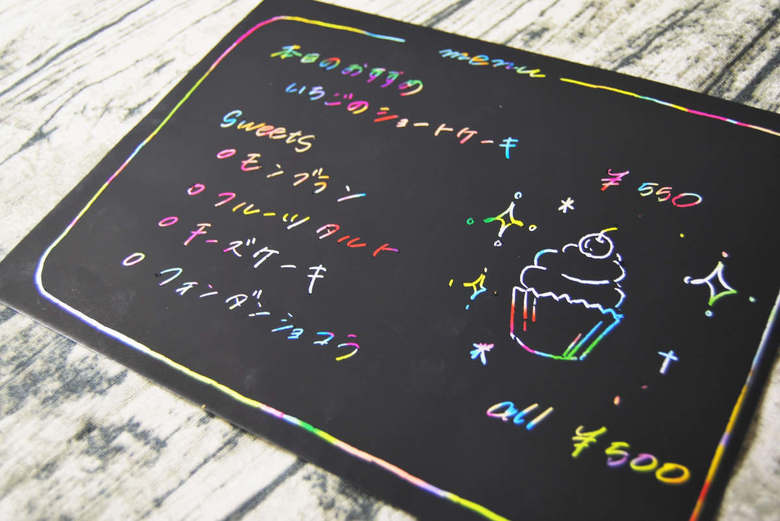 menu
本日のおすすめ
いちごのショートケーキ
¥550
sweets
○モンブラン
○フルーツタルト
○チーズケーキ
○フォンダンショコラ
all ¥500